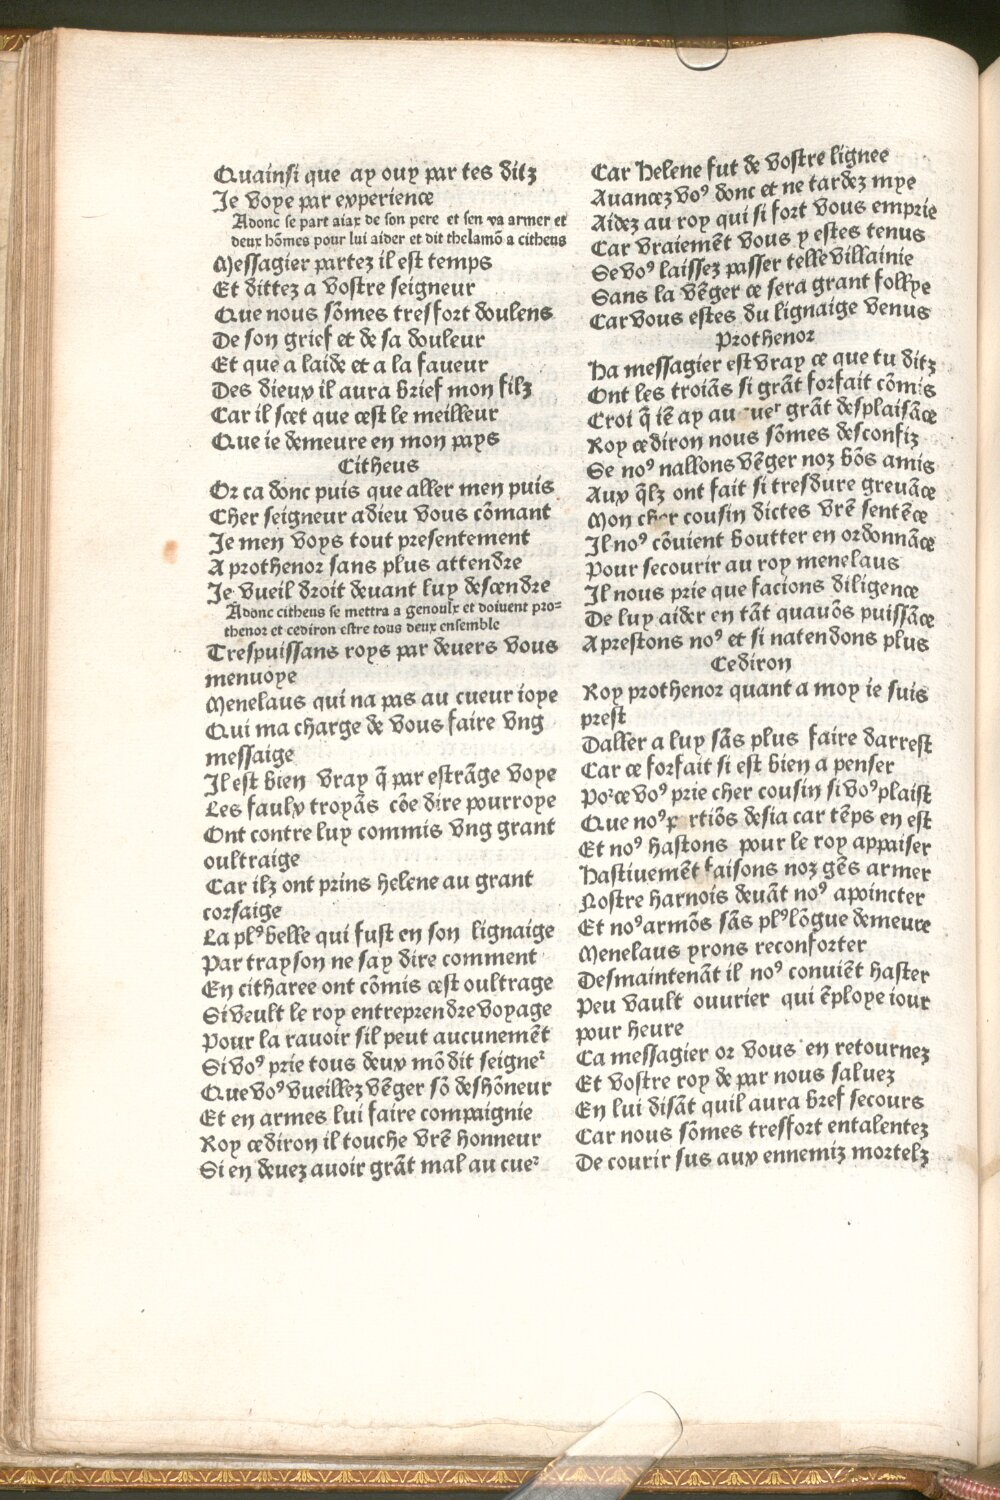 Quainsi que ay ouy par tes ditz
Je voye par experience
Adonc se part aiax de son pere et sen va armer et
deux hõmes pour lui aider et dit thelamõ a citheus
Messagier partez il est temps
Et dittez a vostre seigneur
Que nous sõmes tresfort doulens
De son grief et de sa douleur
Et que a laide et a la faueur
Des dieux il aura brief mon filz
Car il scet que cest le meilleur
Que ie demeure en mon pays
Citheus
Or ca donc puis que aller men puis
Cher seigneur adieu vous cõmant
Je men voys tout presentement
A prothenor sans plus attendre
Je vueil droit deuant luy descendre
Adonc citheus se mettra a genoulx et doiuent pro=
thenor et cediron estre tous deux ensemble
Trespuissans roys par deuers vous
menuoye
Menelaus qui na pas au cueur ioye
Qui ma charge de vous faire vng
messaige
Il est bien vray q̃ par estrãge voye
Les faulx troyãs cõe dire pourroye
Ont contre luy commis vng grant
oultraige
Car ilz ont prins helene au grant
corsaige
La plꝰ belle qui fust en son lignaige
Par trayson ne say dire comment
En citharee ont cõmis cest oultrage
Si veult le roy entreprendre voyage
Pour la rauoir sil peut aucunemẽt
Si voꝰ prie tous deux mõ dit seigneᷣ
Que voꝰ vueillez vẽger sõ deshõneur
Et en armes lui faire compaignie
Roy cediron il touche vrẽ honneur
Si en deuez auoir grãt mal au cueᷣ
Car helene fut de vostre lignee
Auancez voꝰ donc et ne tardez mye
Aidez au roy qui si fort vous emprie
Car vraiemẽt vous y estes tenus
Se voꝰ laissez passer telle villainie
Sans la vẽger ce sera grant follye
Car vous estes du lignaige venus
Prothenor
Ha messagier est vray ce que tu ditz
Ont les troiãs si grãt forfait cõmis
Croi q̃ iẽ ay au cueᷣ grãt desplaisãce
Roy cediron nous sõmes desconfiz
Se noꝰ nallons vẽger noz bõs amis
Aux q̃lz ont fait si tresdure greuãce
Mon cher cousin dictes vrẽ sentẽce
Il noꝰ cõuient boutter en ordonnãce
Pour secourir au roy menelaus
Il nous prie que facions diligence
De luy aider en tãt quauõs puissãce
Aprestons noꝰ et si natendons plus
Cediron
Roy prothenor quant a moy ie suis
prest
Daller a luy sãs plus faire darrest
Car ce forfait si est bien a penser
Poᷣ ce voꝰ prie cher cousin si voꝰ plaist
Que noꝰ partiõs desia car tẽps en est
Et noꝰ hastons pour le roy appaiser
Hastiuemẽt faisons noz gẽs armer
Nostre harnois deuãt noꝰ apoincter
Et noꝰ armõs sãs plꝰ lõgue demeure
Menelaus yrons reconforter
Desmaintenãt il noꝰ conuiẽt haster
Peu vault ouurier qui ẽploye iour
pour heure
Ca messagier or vous en retournez
Et vostre roy de par nous saluez
En lui disãt quil aura bref secours
Car nous sõmes tresfort entalentez
De courir sus aux ennemiz mortelz